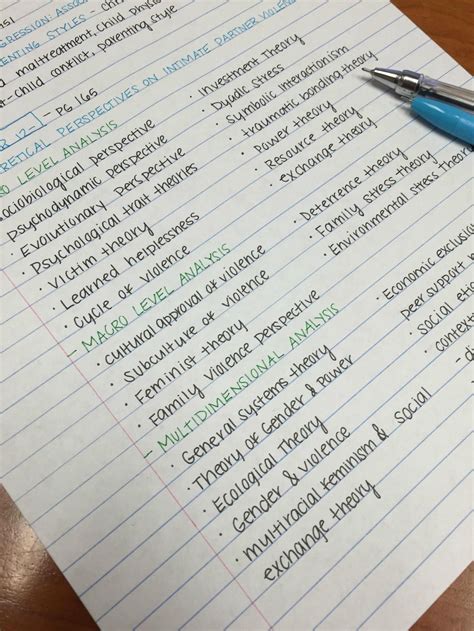 GRESSION: ASSOC
ENTING STYLES - chi
maltreatment, child physic
child conflict, parenting style
12 - PG 165
RETICAL PERSPECTIVES ON INTIMATE PARTNER VIOLEN
RO LEVEL ANALYSIS
ociobiological perspective
psychodynamic perspective
Evolutionary Perspective
· Psychological trait theories
· Victim theory
· Learned helplessness
· Cycle of violence
· Investment Theory
· Dyadic stress
· Symbolic interactionism
· traumatic bonding theory
· Power theory
· Resource theory
· exchange theory
- MACRO LEVEL ANALYSIS
· Cultural approval of violence
· Subculture of violence
· Feminist theory
· Family violence perspective
· Deterrence theory
· Family stress theory
· Environmental stress Theor
- MULTIDIMENSIONAL ANALYSIS
· General systems theory
· Theory of Gender & Power
· Ecological Theory
· Gender & violence
· multiracial feminism & social
exchange theory
· Economic exclusio
peer support
· social etio
· context
- di